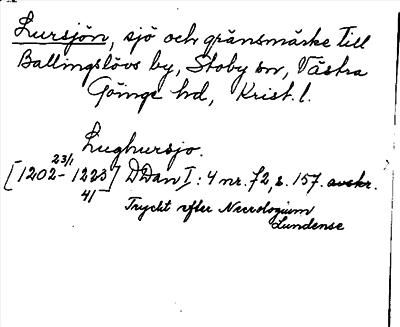 Lursjön, sjö och gränsmärke till
Ballingslövs by, Stoby sn, Västra
Göinge hd, Krist. l.
Lughursjo.
[1202 23/1 - 1223 4/1] DDan I: 4 nr. 72, s. 157. avskr.
Tryckt efter Necrologium
Lundense